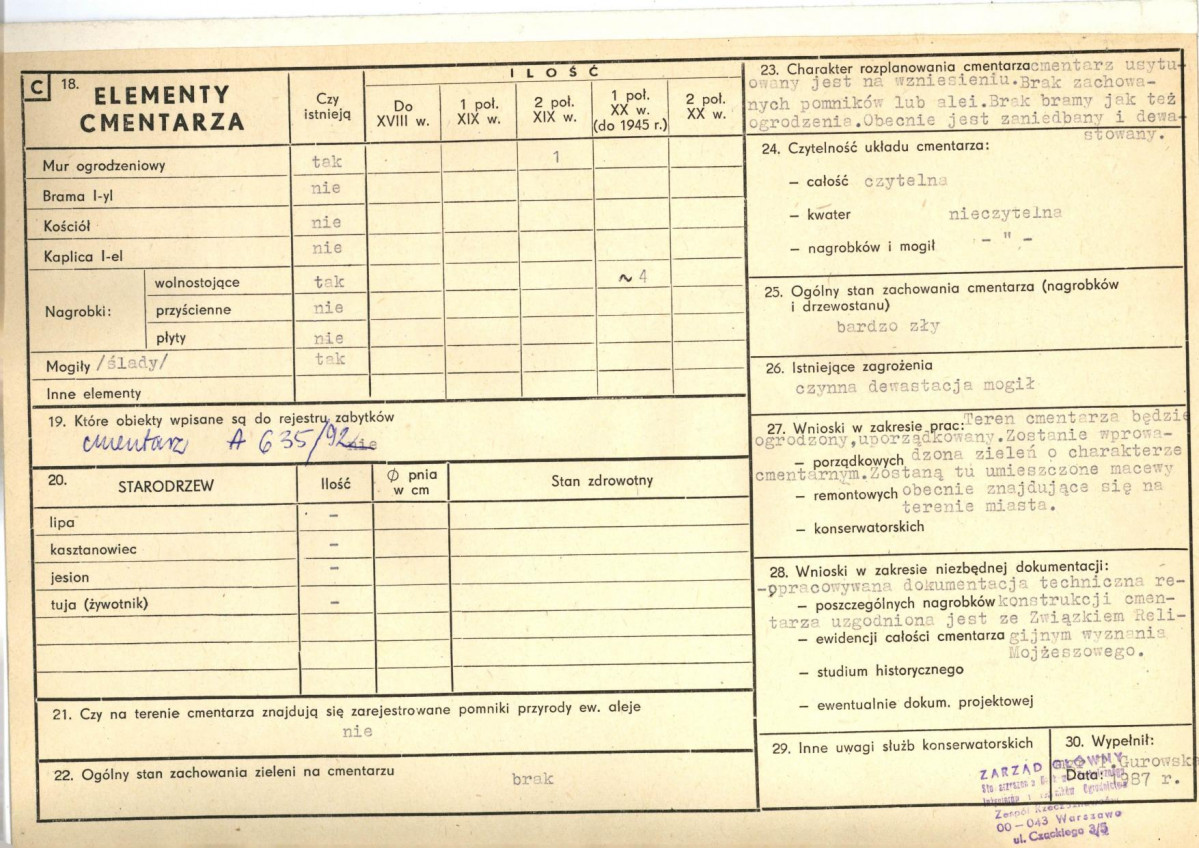 C 18. ELEMENTY CMENTARZA
Czy istnieją
ILOŚĆ
Do XVIII w.
1 poł. XIX w.
2 poł. XIX w.
1 poł. XX w. (do 1945 r.)
2 poł. XX w.
Mur ogrodzeniowy tak 1
Brama I-yl nie
Kościół nie
Kaplica I-el nie
Nagrobki:
wolnostojące tak ~ 4
przyścienne nie
płyty nie
Mogiły /ślady/ tak
Inne elementy
19. Które obiekty wpisane są do rejestru zabytków
cmentarz A 635/92 nie
20. STARODRZEW Ilość Ø pnia w cm Stan zdrowotny
lipa –
kasztanowiec –
jesion –
tuja (żywotnik) –
21. Czy na terenie cmentarza znajdują się zarejestrowane pomniki przyrody ew. aleje
nie
22. Ogólny stan zachowania zieleni na cmentarzu
brak
23. Charakter rozplanowania cmentarza cmentarz usytu-
owany jest na wzniesieniu.Brak zachowa-
nych pomników lub alei.Brak bramy jak też
ogrodzenia.Obecnie jest zaniedbany i dewa-
stowany.
24. Czytelność układu cmentarza:
– całość czytelna
– kwater nieczytelna
– nagrobków i mogił – " –
25. Ogólny stan zachowania cmentarza (nagrobków
i drzewostanu)
bardzo zły
26. Istniejące zagrożenia
czynna dewastacja mogił
27. Wnioski w zakresie prac: Teren cmentarza będzie
ogrodzony,uporządkowany.Zostanie wprowa-
– porządkowych dzona zieleń o charakterze
cmentarnym.Zostaną tu umieszczone macewy
– remontowych obecnie znajdujące się na
terenie miasta.
– konserwatorskich
28. Wnioski w zakresie niezbędnej dokumentacji:
-opracowywana dokumentacja techniczna re-
– poszczególnych nagrobków konstrukcji cmen-
tarza uzgodniona jest ze Związkiem Reli-
– ewidencji całości cmentarza gijnym wyznania
Mojżeszowego.
– studium historycznego
– ewentualnie dokum. projektowej
29. Inne uwagi służb konserwatorskich
30. Wypełnił:
Gurowska
Data: 1987 r.
ZARZĄD GŁÓWNY
00-043 Warszawa
ul. Czackiego 3/5